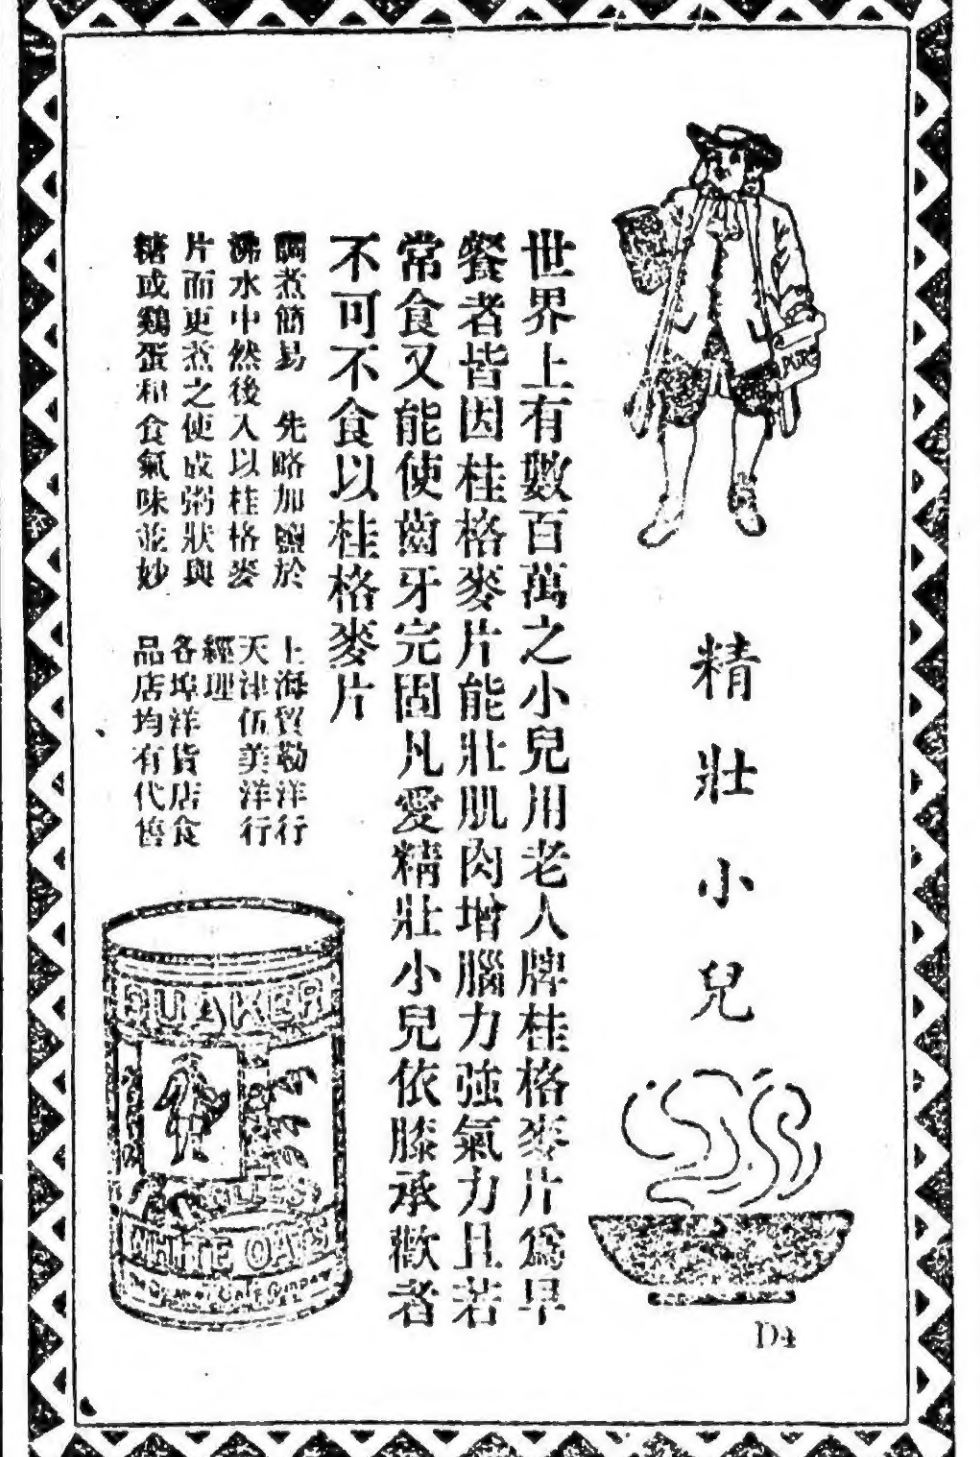 精壯小兒
世界上有數百萬之小兒用老人牌桂格麥片為早
餐者皆因桂格麥片能壯肌肉增腦力強氣力且若
常食又能使齒牙完固凡愛精壯小兒依膝承歡者
不可不食以桂格麥片
調煮簡易 先略加鹽於
沸水中然後入以桂格麥
片而更煮之使成粥狀與
糖或鷄蛋和食氣味並妙
上海貿勒洋行
天津伍美洋行
經理
各埠洋貨店食
品店均有代售
PURE
QUAKER
WHITE OATS
D4